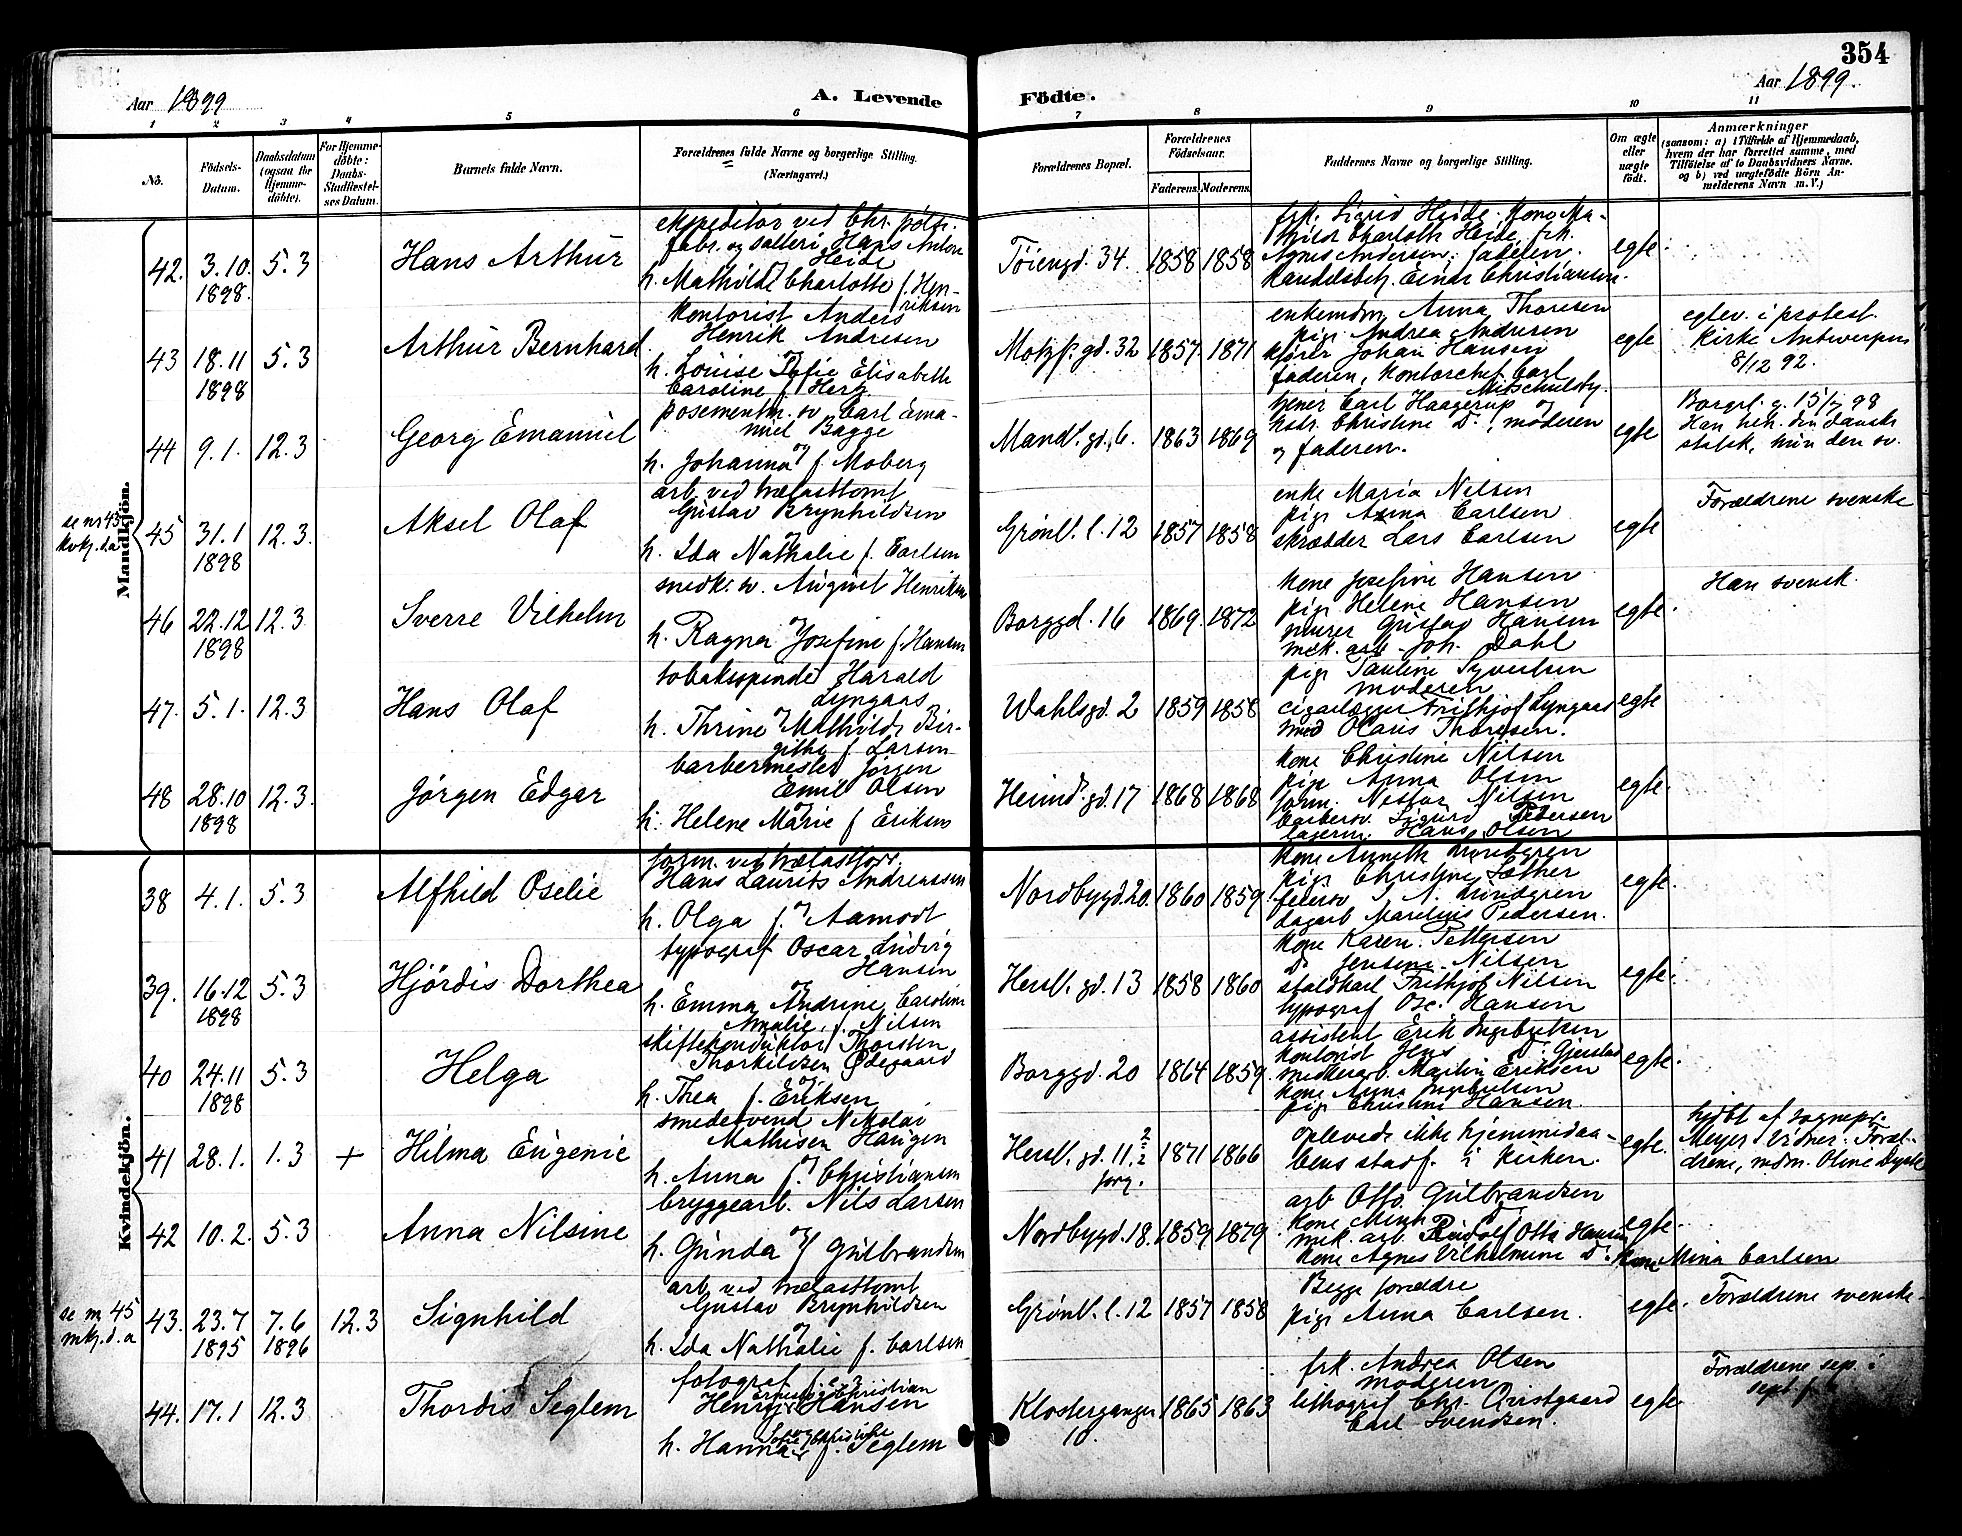 354
Aar 1899
A. Levende
Födte.
Aar 1899.
1 2 3 4 5 6 7 8 9 10 11
No.
Födsels-
Datum.
Daabsdatum
(ogsaa for
Hjemme-
döbte).
For Hjemme-
döbte:
Daabs-
Stadfæstel-
ses Datum.
Barnets fulde Navn.
Forældrenes fulde Navne og borgerlige Stilling.
(Næringsvei.)
Forældrenes Bopæl.
Forældrenes
Födselsaar.
Faderens.
Moderens.
Faddernes Navne og borgerlige Stilling.
Om ægte
eller
uægte
født.
Anmærkninger
(saasom: a) i Tilfælde af Hjemmedaab,
hvem der har forrettet samme, med
Tilföielse af to Daabsvidners Navne.
og b) ved uægtefödte Börn An-
melderens Navn m. V.)
Mandkjön.
42. 3.10. 1898. 5.3 Hans Arthur
ekspeditör ved Chr. pölse-
fabr. og salteri Hans Anton
Heide
h. Mathilde Charlotte f. Hen-
riksen
Töiengd. 34. 1858 1858
frk. Sigrid Heide. Kone Ma-
thilde Charlotte Heide, frk.
Agnes Andersen, faderen.
handelsbetj. Einar Christiansen.
egte.
43 18.11 1898 5.3 Arthur Bernhard
kontorist Anders
Henrik Andresen
h. Louise Sofie Elisabeth
Caroline f. Herz.
Motzf. gd. 32 1857. 1871
enkemdm Anna Thoresen
pige Andrea Andresen
kjörer Johan Hansen
faderen, kontorchef Carl
egte
egtev. i protest.
kirke Antwerpen
8/12 92.
44 9.1. 12.3 Georg Emanuel
posementm. sv Carl Ema-
nuel Bagge
h. Johanna f. Moberg
Mandl. gd. 6. 1863 1869
tjener Carl Haagerup og
hstr. Christine D., moderen
og faderen.
egte
Borgerl. g. 15/7 98
Han beh. den danske
statsk, hun den sv.
se nr 45
kvkj. d.a
45 31.1 1898 12.3. Aksel Olaf
arb. ved trælasttomt
Gustav Brynhildsen
h. Ida Nathalie f. Carlsen
Grönl. l. 12 1857 1858
enke Maria Nilsen
pige Anna Carlsen
skrædder Lars Carlsen
egte
Forældrene svenske
46 22.12 1898 12.3. Sverre Vilhelm
snedk. sv. August Henriksen
h. Ragna Josefine f. Hansen
Borggd. 16 1869. 1872
kone Josefine Hansen
pige Helene Hansen
murer Gustav Hansen
mek. arb. Joh. Dahl
egte.
Han svensk.
47. 5.1. 12.3 Hans Olaf
tobaksspinder Harald
Lyngaas
h. Thrine Mathilde Bir-
githe f. Larsen
Wahlsgd. 2 1859 1858
pige Pauline Syvertsen
moderen
cigarlægger Frithjof Lyngaas
smed Olaus Thoresen.
egte
48 28.10 1898 12.3. Jørgen Edgar
barbermester Jørgen
Emil Olsen
h. Helene Marie f Eriksen
Heimd. gd. 17 1868 1868
kone Christine Nilsen
pige Anna Olsen
form. Nestor Nilsen
barbersv. Sigurd Pedersen
lagerm. Hans Olsen
egte.
Kvindekjön.
38 4.1. 5.3 Alfhild Oselie
form. ved trælastforr.
Hans Laurits Andreassen
h. Olga f. Aamodt
Nordbygd. 20. 1860 1859
kone Annette Lundgren
pige Christine Sæther
feiersv J. A. Lundgren
dagarb Marelius Pedersen.
egte.
39. 16.12 1898 5.3 Hjördis Dorthea
typograf Oscar Ludvig
Hansen
h. Emma Andrine Caroline
Amalie f. Nilsen
Hersl. gd. 13 1858 1860
kone Karen Pettersen
Do Jensine Nilsen
staldkarl Frithjof Nilsen
typograf Osc. Hansen
egte.
40 24.11 1898 5.3 Helga
skiftekonduktør Thorsten
Thorkildsen Ødegaard
h. Thea f. Eriksen
Borggd. 20 1864 1859
assistent Erik Engebretsen
kontorist Jens Gjerstad
snedkerarb. Martin Eriksen
kone Anna Engebretsen
pige Christine Hansen
egte.
41 28.1. 1.3 + Hilma Eugenie
smedesvend Nikolai
Mathisen Haugen
h. Anna f. Christiansen
Hersl. gd. 11,
forg. 1871 1866
oplevede ikke hjemmedaa-
bens stadf. i kirken.
egte.
hjdbt af sognepr.
Meyer Vidner: Foræl-
drene, mdm. Oline
42 10.2. 5.3 Anna Nilsine
bryggearb. Nils Larsen
h. Gunda f Gulbrandsen
Nordbygd. 18. 1859 1879
arb Otto Gulbrandsen
kone Minda Do
mek. arb. Rudolf Otto Hansen
kone Agnes Vilhelmine Do. kone Mina Carlsen
egte.
se nr 45
mkj. d. a
43. 23.7 1895 7.6 1896 12.3 Signhild
arb ved trælasttomt
Gustav Brynhildsen
h. Ida Nathalie f. Carlsen
Grönl. l. 12 1857 1858
Begge forældre
pige Anna Carlsen.
egte.
Forældrene svenske.
44. 17.1 12.3 Thordis Seglem
fotograf
Henry Hansen
Christian
h. Hanna f. Seglem
Klostergangen
10. 1865 1863
frk. Andrea Olsen
moderen
lithograf Chr. Qvistgaard
Carl Svendsen.
egte.
Forældrene sep. i
sept.